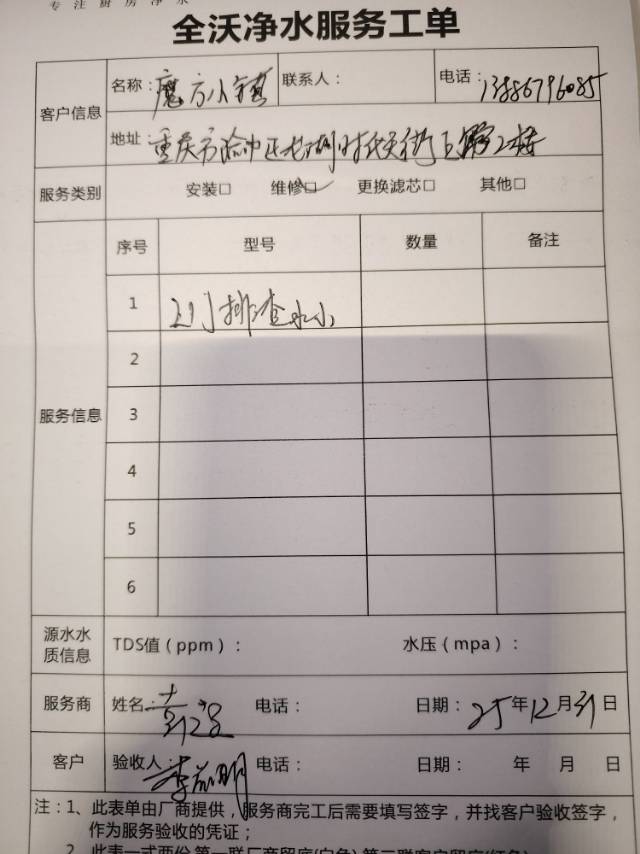 专注厨房净水
全沃净水服务工单
客户信息
名称：魔方小镇 联系人： 电话：13886796085
地址：重庆市渝中区龙湖时代天街 2楼
服务类别 安装□ 维修□✓ 更换滤芯□ 其他□
服务信息
序号 型号 数量 备注
1 上门排查水小
2
3
4
5
6
源水水质信息 TDS值（ppm）： 水压（mpa）：
服务商 姓名： 电话： 日期：25年12月31日
客户 验收人： 电话： 日期： 年 月 日
注：1、此表单由厂商提供，服务商完工后需要填写签字，并找客户验收签字，
作为服务验收的凭证；
2、此表一式两份，第一联厂商留底(白色)，第二联客户留底(红色)